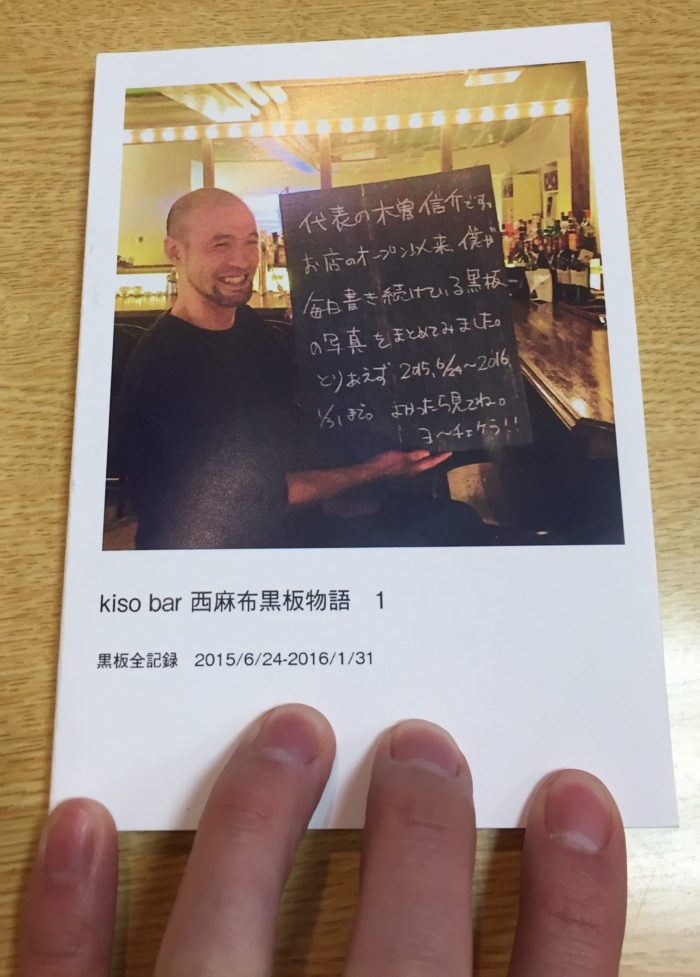 代表の木曽信介です。
お店のオープン以来、僕が
毎日書き続けている黒板
の写真をまとめてみました。
とりあえず 2015.6/24〜2016
1/31まで。 よかったら見てね。
ヨ〜チェケラ!!
kiso bar 西麻布黒板物語 1
黒板全記録 2015/6/24-2016/1/31